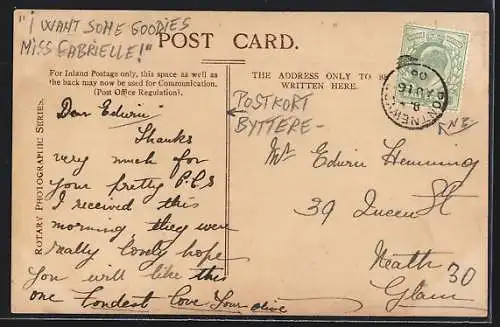 "I WANT SOME GOODIES
MISS GABRIELLE!"
POST CARD.
For Inland Postage only, this space as well as
the back may now be used for Communication.
(Post Office Regulation).
THE ADDRESS ONLY TO BE
WRITTEN HERE.
ROTARY PHOTOGRAPHIC SERIES.
Dear Edwin
Thanks
very much for
your pretty P.C.S
I received this
morning, they were
really lovely hope
you will like this
one Fondest love Your Olive
POSTKORT
BYTTERE-
NB
Mr Edwin Hemming
39 Queen St
Neath 30
Glam